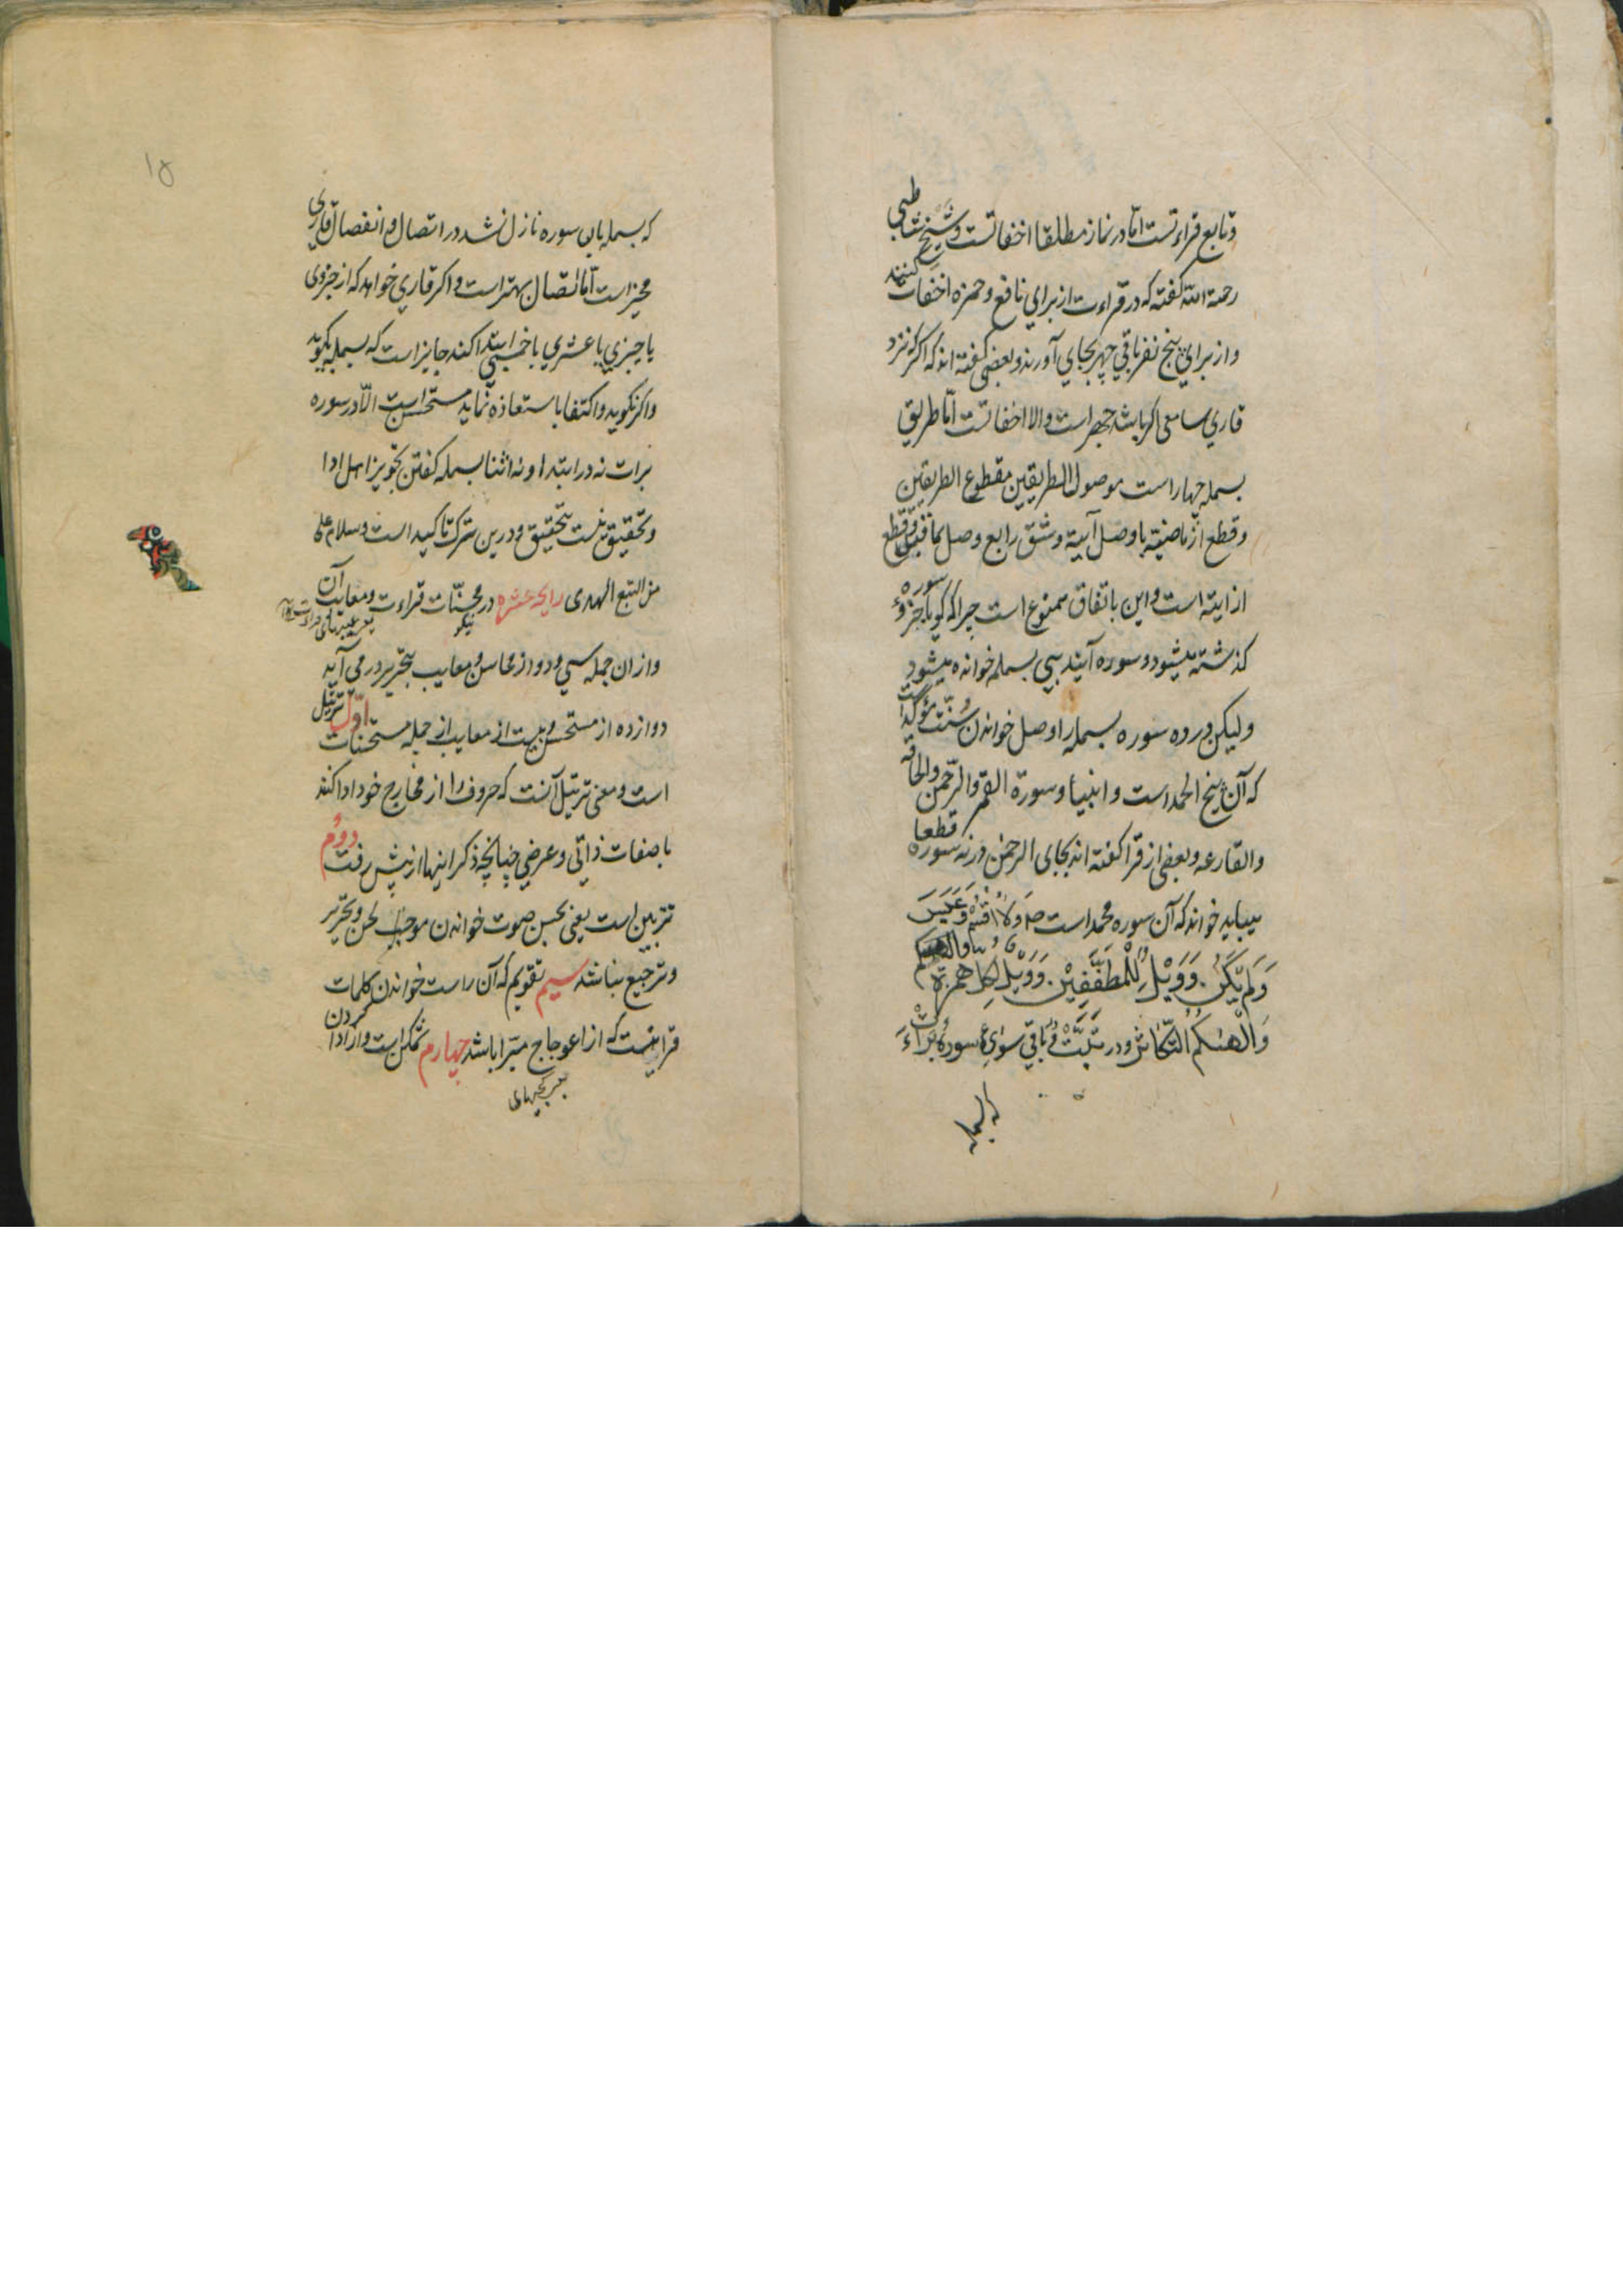 وتابع قراءتست اما در نماز مطلقا اخفاتست وشیخ شاطبی
رحمة الله کفته که در قراءت از برای نافع وحمزه اخفات کنند
واز برای پنج نفر باقی جهر بجای آورند وبعضی کفته اند که اکر نزد
قاری سامعی اکر باشد جهر است والا اخفاتست اما طریق
بسمله چهار است موصول الطریقین مقطوع الطریقین
وقطع از ماضیة با وصل آتیة وشق رابع وصل بماقبل وقطع
از اتیة است واین باتفاق ممنوع است چرا که کویا جزؤ سوره
کذشته میشود وسوره آینده بی بسمله خوانده میشود
ولیکن در ده سوره بسمله را وصل خواندن سنت مؤکد است
که آن پنج الحمد است وانبیا وسورة القمر والرحمن والحاقه
والقارعه وبعضی از قرا کفته اند بجای الرحمن ورنه سوره قطعا
میباید خواند که آن سوره محمد است ولا اقسم وعبس
ولم یکن وویل للمطففین وویل لکل همزة
والهیکم التکاثر ودر تبت وباقی سوای سوره براءت
که بسمله
۱۵
که بسمله بان سوره نازل نشد در اتصال وانفصال قاری
مخیر است اما اتصال بهتر است واکر قاری خواهد که از جزوی
یا حیزی یا عشری یا خمسی ابتدا کند جایز است که بسمله بکوید
واکر نکوید واکتفا باستعاذه نماید مستحسن است الا در سوره
برات نه در ابتدا ونه اثنا بسمله کفتن تجویز اهل ادا
وتحقیق نیست بتحقیق ودرین ترک تاکید است وسلام علی
من اتبع الهدی رایحه عشره در محسنات قراءت ومعایب آن
نیکو
وازان جمله سی ودو از محاسن ومعایب بتحریر در می آید
دوازده از مستحسن وبیست از معایب از جمله مستحسنات اول ترتیل
است ومعنی ترتیل آنست که حروف را از مخارج خود ادا کنند
با صفات ذاتی وعرضی چنانچه ذکر اینها از پیش رفت دوم
تزیین است یعنی بحسن صوت خواندن موجب لحن وتحریر
وترجیع نباشد سیم تقویم که آن راست خواندن کلمات
قرانیست که از اعوجاج مبرا باشد چهارم تمکین است واز ادا کردن